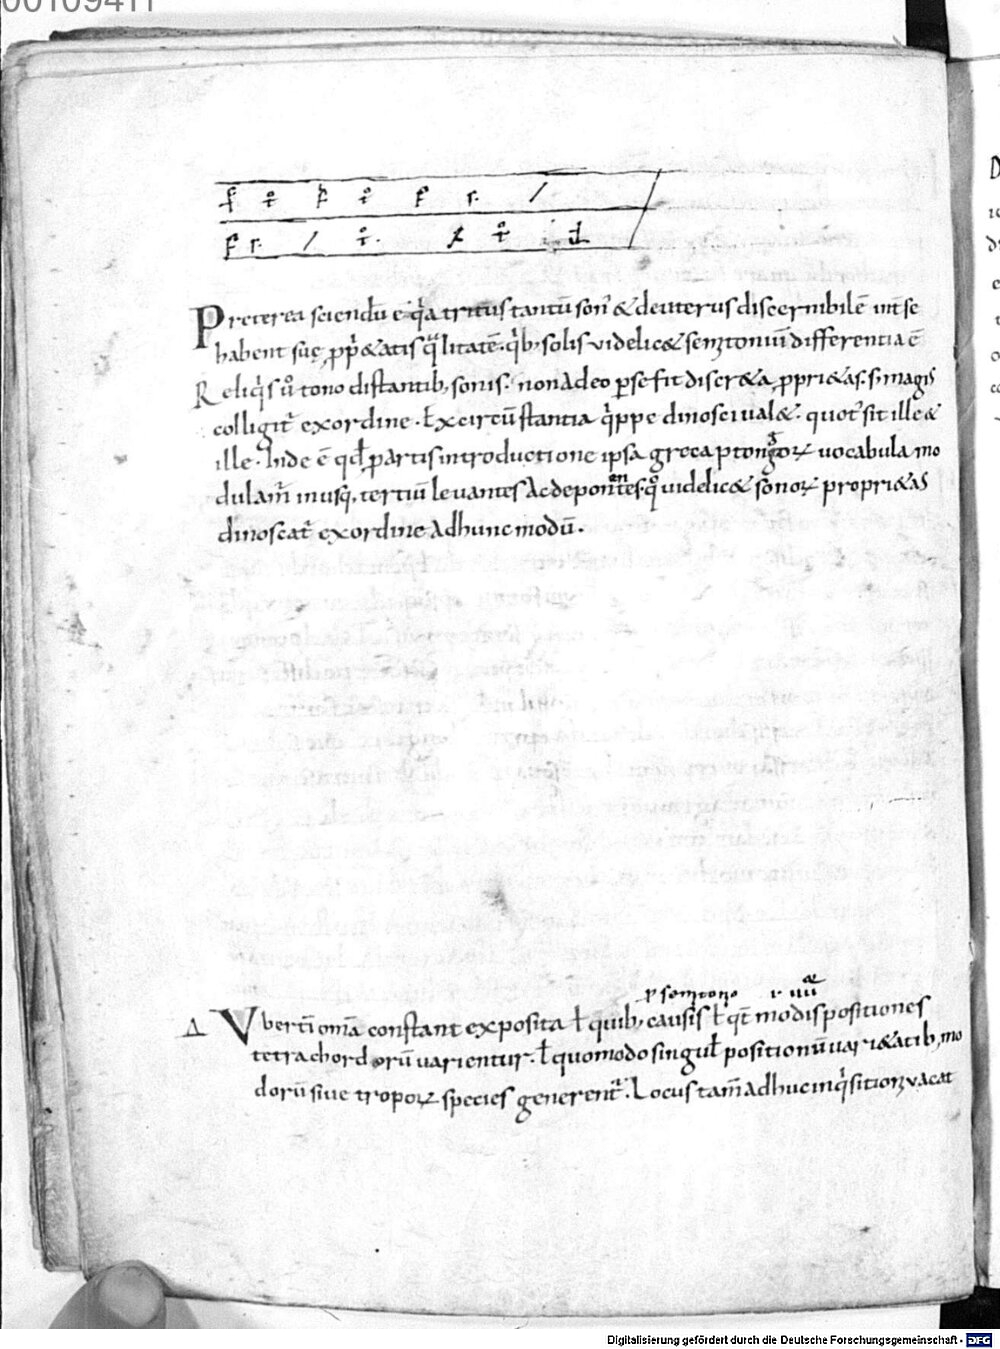 00109411
Preterea sciendū ē q̇a tritus tantū son᷒ & deuterus discernibilē int̄ se
habent suę ꝓp̄&atis q̄litatē. q̇b; solis videlic& semitoniū differentia ē
Reliq̇s ů tono distantib; sonis. non adeo ꝑ se fit discr&a ꝓpri&as. s; magis
colligit᷒ ex ordine. ł ex circūstantia q̇ppe dinosci ual&. quot᷒ sit ille &
ille. Inde ē qđ partis introductione ipsa greca ptongoꝝ uocabula mo
dulam̄ in usq;. tertiū leuantes ac deponentes. q̊ videlic& sonoꝝ propri&as
dinoscat᷒ ex ordine ad hunc modū.
ꝑ semitonio
Δ Vberī om̄a constant exposita ł quib; causis ł q̄t modis positiones
tetrachordorū uarientur. ł quomodo singul̄ positionū uari&atib; mo
dorū siue tropoꝝ species generent᷒. Locus tam̄ adhuc inq̇sitioni vacat
Digitalisierung gefördert durch die Deutsche Forschungsgemeinschaft - DFG